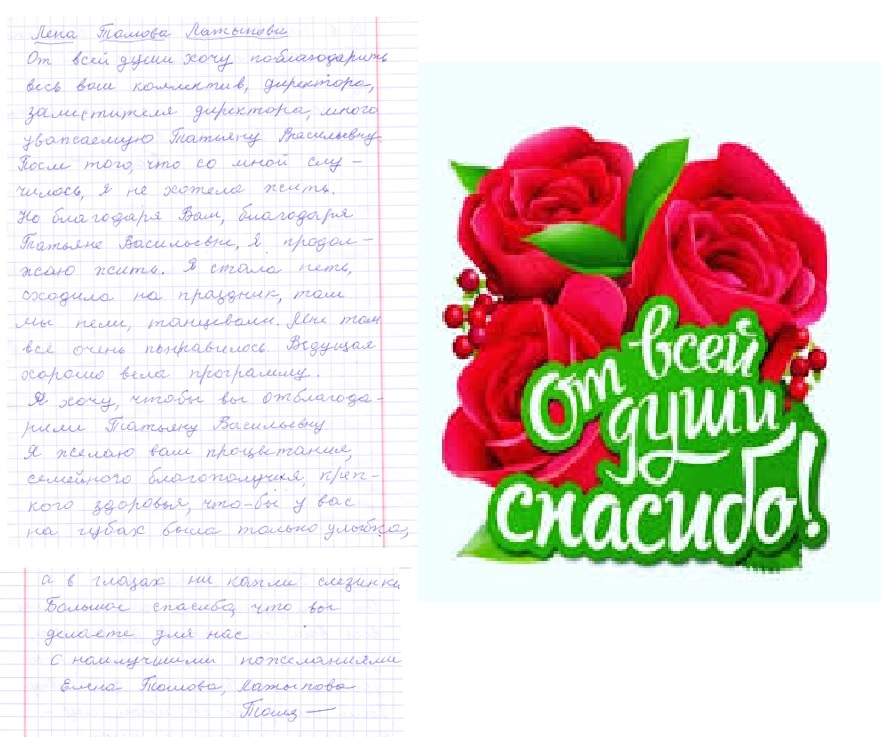 Лена Томова Латыпова
От всей души хочу поблагодарить
весь ваш коллектив, директора,
заместителя директора, много
уважаемую Татьяну Васильевну.
После того, что со мной слу-
чилось, я не хотела жить.
Но благодаря Вам, благодаря
Татьяне Васильевне, я продол-
жаю жить. Я стала петь,
сходила на праздник, там
мы пели, танцевали. Мне там
всё очень понравилось. Ведущая
хорошо вела программу.
Я хочу, чтобы вы отблагода-
рили Татьяну Васильевну
Я желаю вам процветания,
семейного благополучия, креп-
кого здоровья, что-бы у вас
на губах была только улыбка,
а в глазах ни капли слезинки
Большое спасибо, что вы
делаете для нас
с наилучшими пожеланиями
Елена Томова, Латыпова
От всей
души
спасибо!